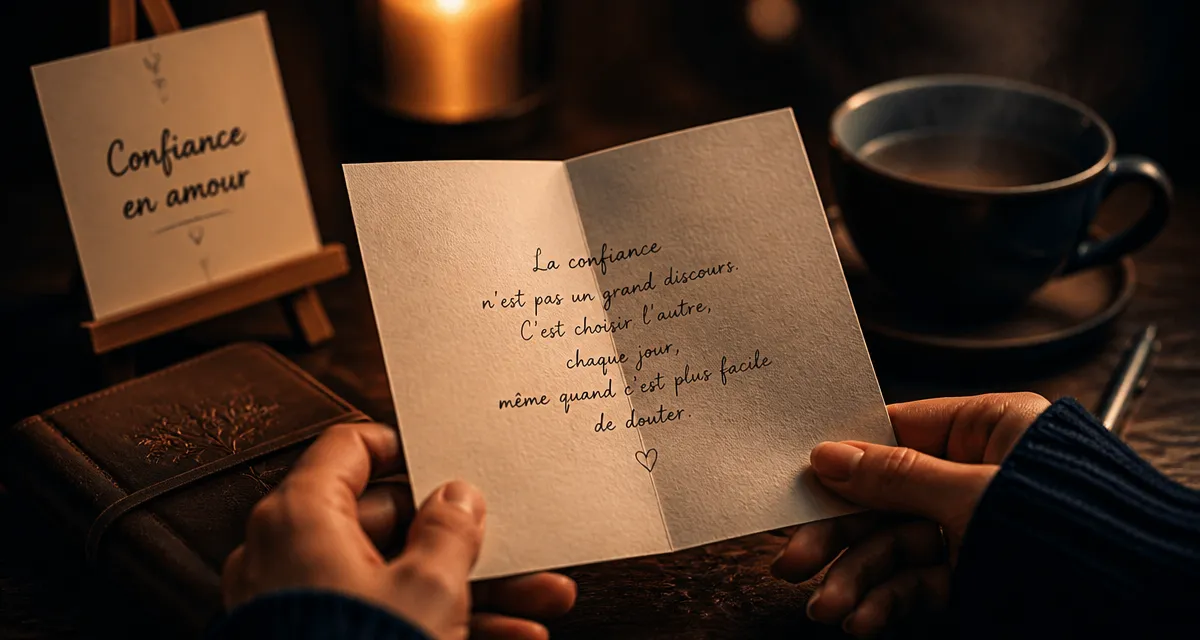 Confiance
en amour
La confiance
n'est pas un grand discours.
C'est choisir l'autre,
chaque jour,
même quand c'est plus facile
de douter.